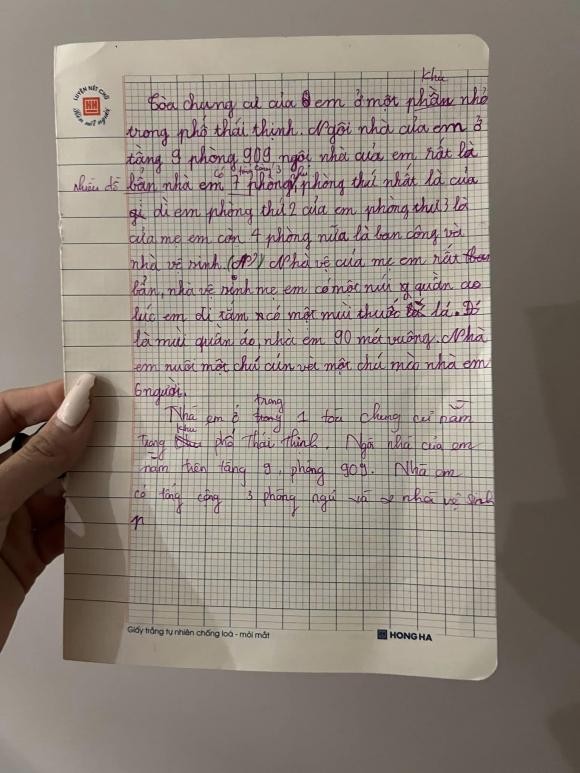 LUYỆN NÉT CHỮ
Rèn nết người
khu
Tòa chung cư của em ở một phần nhỏ
trong phố thái thịnh. Ngôi nhà của em ở
tầng 9 phòng 909 ngôi nhà của em rất là
có tổng cộng 3
nhiều đồ bẩn nhà em 7 phòng, phòng thứ nhất là của
dì em phòng thứ 2 của em phòng thứ 3 là
của mẹ em còn 4 phòng nữa là ban công và
nhà vệ sinh (N) Nhà vệ của mẹ em rất
bẩn, nhà vệ sinh mẹ em có một núi q quần áo
lúc em đi tắm có một mùi thuốc lá. Đó
là mùi quần áo, nhà em 90 mét vuông. Nhà
em nuôi một chú cún và một chú mèo nhà em
6 người.
trong
Nhà em ở trong 1 tòa chung cư nằm
khu
trong phố Thái Thịnh. Ngôi nhà của em
nằm trên tầng 9, phòng 909. Nhà em
có tổng cộng 3 phòng ngủ và 2 nhà vệ sinh
Giấy trắng tự nhiên chống loá - mỏi mắt
HONG HA